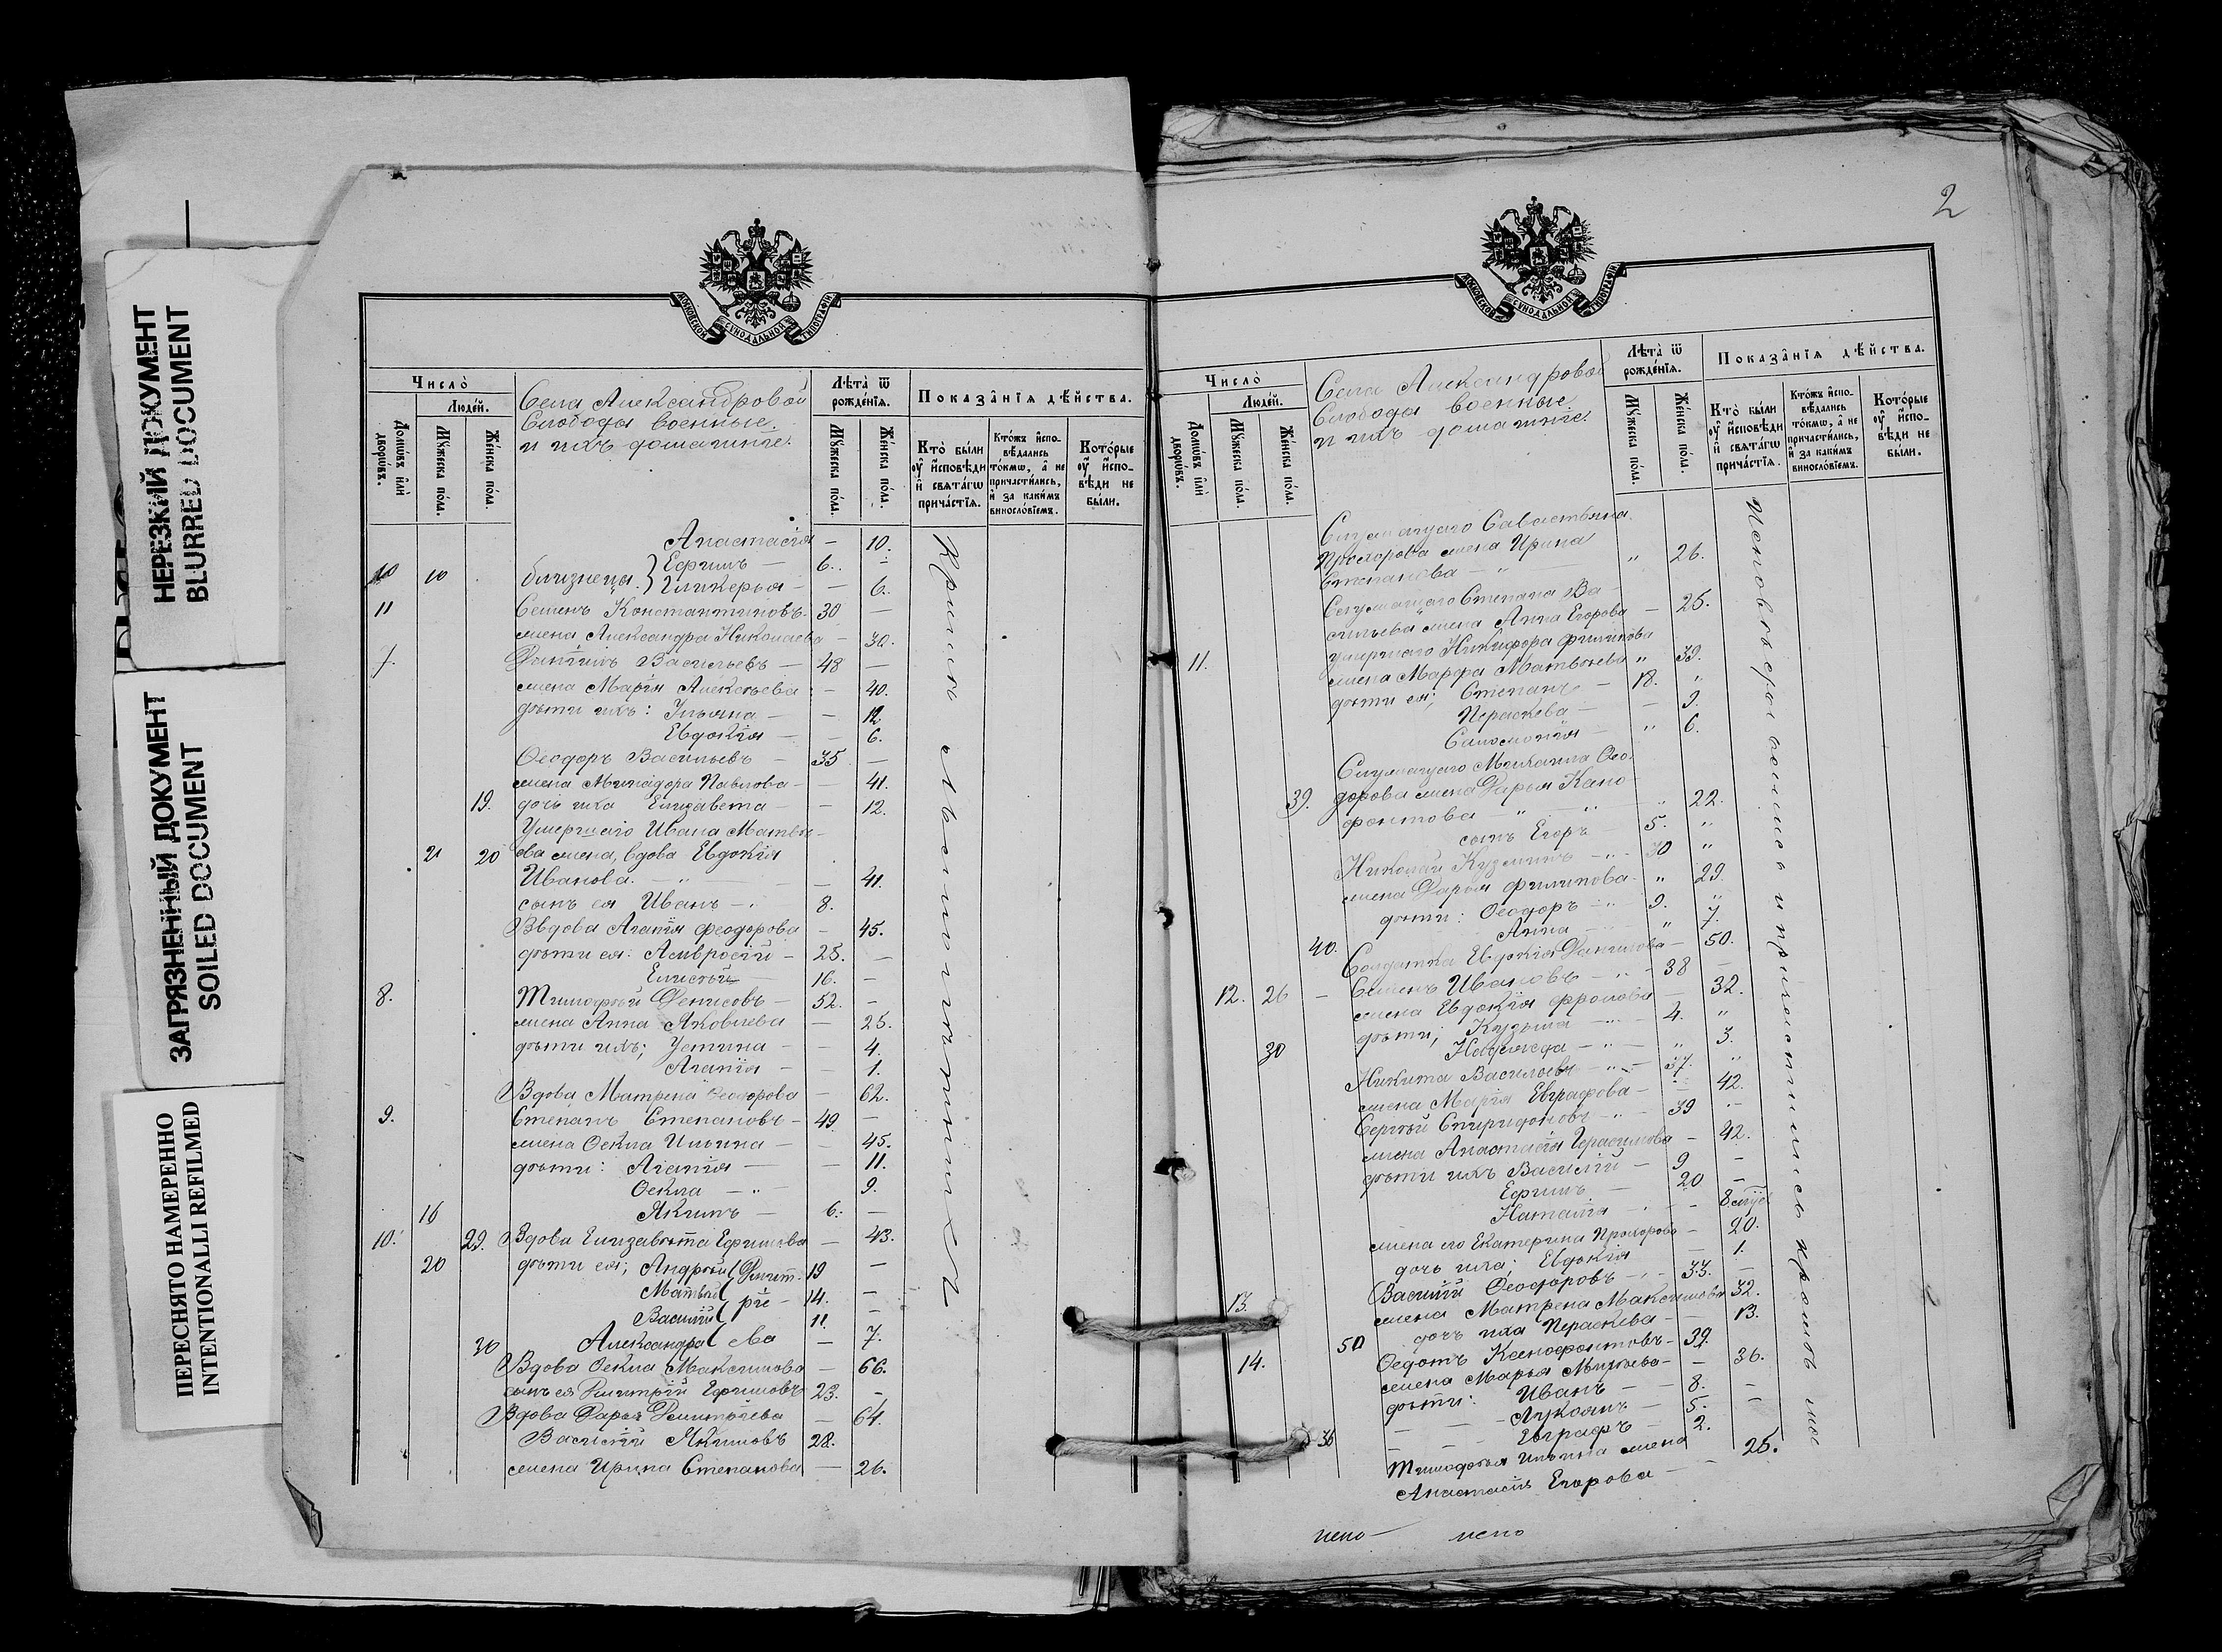 НЕРЕЗКИЙ ДОКУМЕНТ
BLURRED DOCUMENT
ЗАГРЯЗНЕННЫЙ ДОКУМЕНТ
SOILED DOCUMENT
ПЕРЕСНЯТО НАМЕРЕННО
INTENTIONALLI REFILMED
МОСКОВСКОЙ СѴНОДАЛЬНОЙ ТИПОГРАФІИ
Число̀
Людѐй.
Домѡ́въ и҆лѝ дворѡ́въ.
Мꙋ́жеска по́ла.
Же́нска по́ла.
Села Александровой
Слободы военные
и ихъ домашніе.
Лѣ́та ѿ рожде́нїѧ.
Мꙋ́жеска по́ла.
Же́нска по́ла.
Показа̂нїѧ дѣ́йства.
Кто̀ бы́ли оу҆ и҆сповѣди и҆ свѧта́гѡ прича́стїѧ.
Кто́жъ и҆спо-вѣдались то́кмѡ, а҆ не причасти́лись, и҆ за каки́мъ винословїемъ.
Кото́рые оу҆ и҆спо-вѣди не бы́ли.
Анастасія — 10.
10 10 близнецы } Ефимъ — 6. —
Гликерья — — 6.
11 Семенъ Константиновъ 30 —
жена Александра Николаева — 30.
7. Васильевъ — 48 —
жена Марія Алексѣева — 40.
дѣти ихъ: Ульяна — — 12.
Евдокія — — 6.
Ѳеодоръ Васильевъ — 35 —
жена Минадора Павлова — — 41.
19. дочь ихъ Елизавета — — 12.
Умершаго Ивана Матвѣ-
21 20 ева жена, вдова Евдокія
Иванова. — — 41.
сынъ ея Иванъ — 8.
Вдова Агапія Феодорова — 45.
дѣти ея: Амвросій — 25. —
Елисѣй 16. —
8. Тимоѳей Денисовъ — 52. —
жена Анна Яковлева — 25.
дѣти ихъ; Устина — — 4.
Агапія — — 1.
Вдова Матрена Ѳеодорова — 62.
9. Степанъ Степановъ — 49 —
жена Ѳекла Ильина — — 45.
дѣти: Агапія — — 11.
Ѳекла — 9.
16 Якимъ — 6. —
10. 29. Вдова Елизавета Ефимова — 43.
20 дѣти ея; Андрей Дмит- 19 —
Матвѣй ріе- 14. —
Василій 11. —
30 Александра ва — 7.
Вдова Ѳекла Максимова — 66.
сынъ ея Дмитрій Ефимовъ 23. —
Вдова Дарья Дмитріева — 64.
Василій Якимовъ 28.
жена Ирина Степанова — 26.
2
МОСКОВСКОЙ СѴНОДАЛЬНОЙ ТИПОГРАФІИ
Число̀
Людѐй.
Домѡ́въ и҆лѝ дворѡ́въ.
Мꙋ́жеска по́ла.
Же́нска по́ла.
Села Александровой
Слободы военные
и ихъ домашніе.
Лѣ́та ѿ рожде́нїѧ.
Мꙋ́жеска по́ла.
Же́нска по́ла.
Показа̂нїѧ дѣ́йства.
Кто̀ бы́ли оу҆ и҆сповѣди и҆ свѧта́гѡ прича́стїѧ.
Кто́жъ и҆спо-вѣдались то́кмѡ, а҆ не причасти́лись, и҆ за каки́мъ винословїемъ.
Кото́рые оу҆ и҆спо-вѣди не бы́ли.
Служащаго Савастьяна
Прохорова жена Ирина
Степанова — " 26.
Служащаго Степана Ва-
сильева жена Анна Егорова — 25.
умершаго Никифора Филипова
11. жена Марфа Матвѣева " 39.
дѣти ея; Степанъ — 18. "
Параскева — — 9.
Соломонія — " 6.
Служащаго Михаила Ѳео-
39. дорова жена Дарья Ксено-
фонтова — " 22.
сынъ Егоръ 5. "
Николай Кузминъ — 30 "
жена Дарья Филипова " 29.
дѣти: Ѳеодоръ — 9. "
Анна — " 7.
40. Солдатка Данилова — 50.
12. 26 — Семенъ Ивановъ — 38 —
жена Евдокія Фролова — 32.
дѣти; Кузьма — 4. "
30 Надежда — " 3.
Никита Васильевъ — 37. "
жена Марія Евграфова — 42.
Сергѣй Спиридоновъ — 39 —
жена Анастасія Герасимова — 42.
дѣти ихъ Василій — 9 —
Ефимъ — 20 —
Наталія — — 8
жена его Екатерина Прохорова — 20.
дочь ихъ; Евдокія — 1.
13. Василій Ѳеодоровъ — 33. —
жена Матрена Максимова 32.
50 дочь ихъ Параскева — 13.
14. Ѳедотъ Ксенофонтовъ — 39.
жена Марья — — 36.
дѣти: Иванъ — 8. —
Лукоянъ — 5. —
36 Евграфъ — 2.
Тимофея Ильина жена
Анастасія Егорова — 25.
Исповѣдались и причастились кромѣ